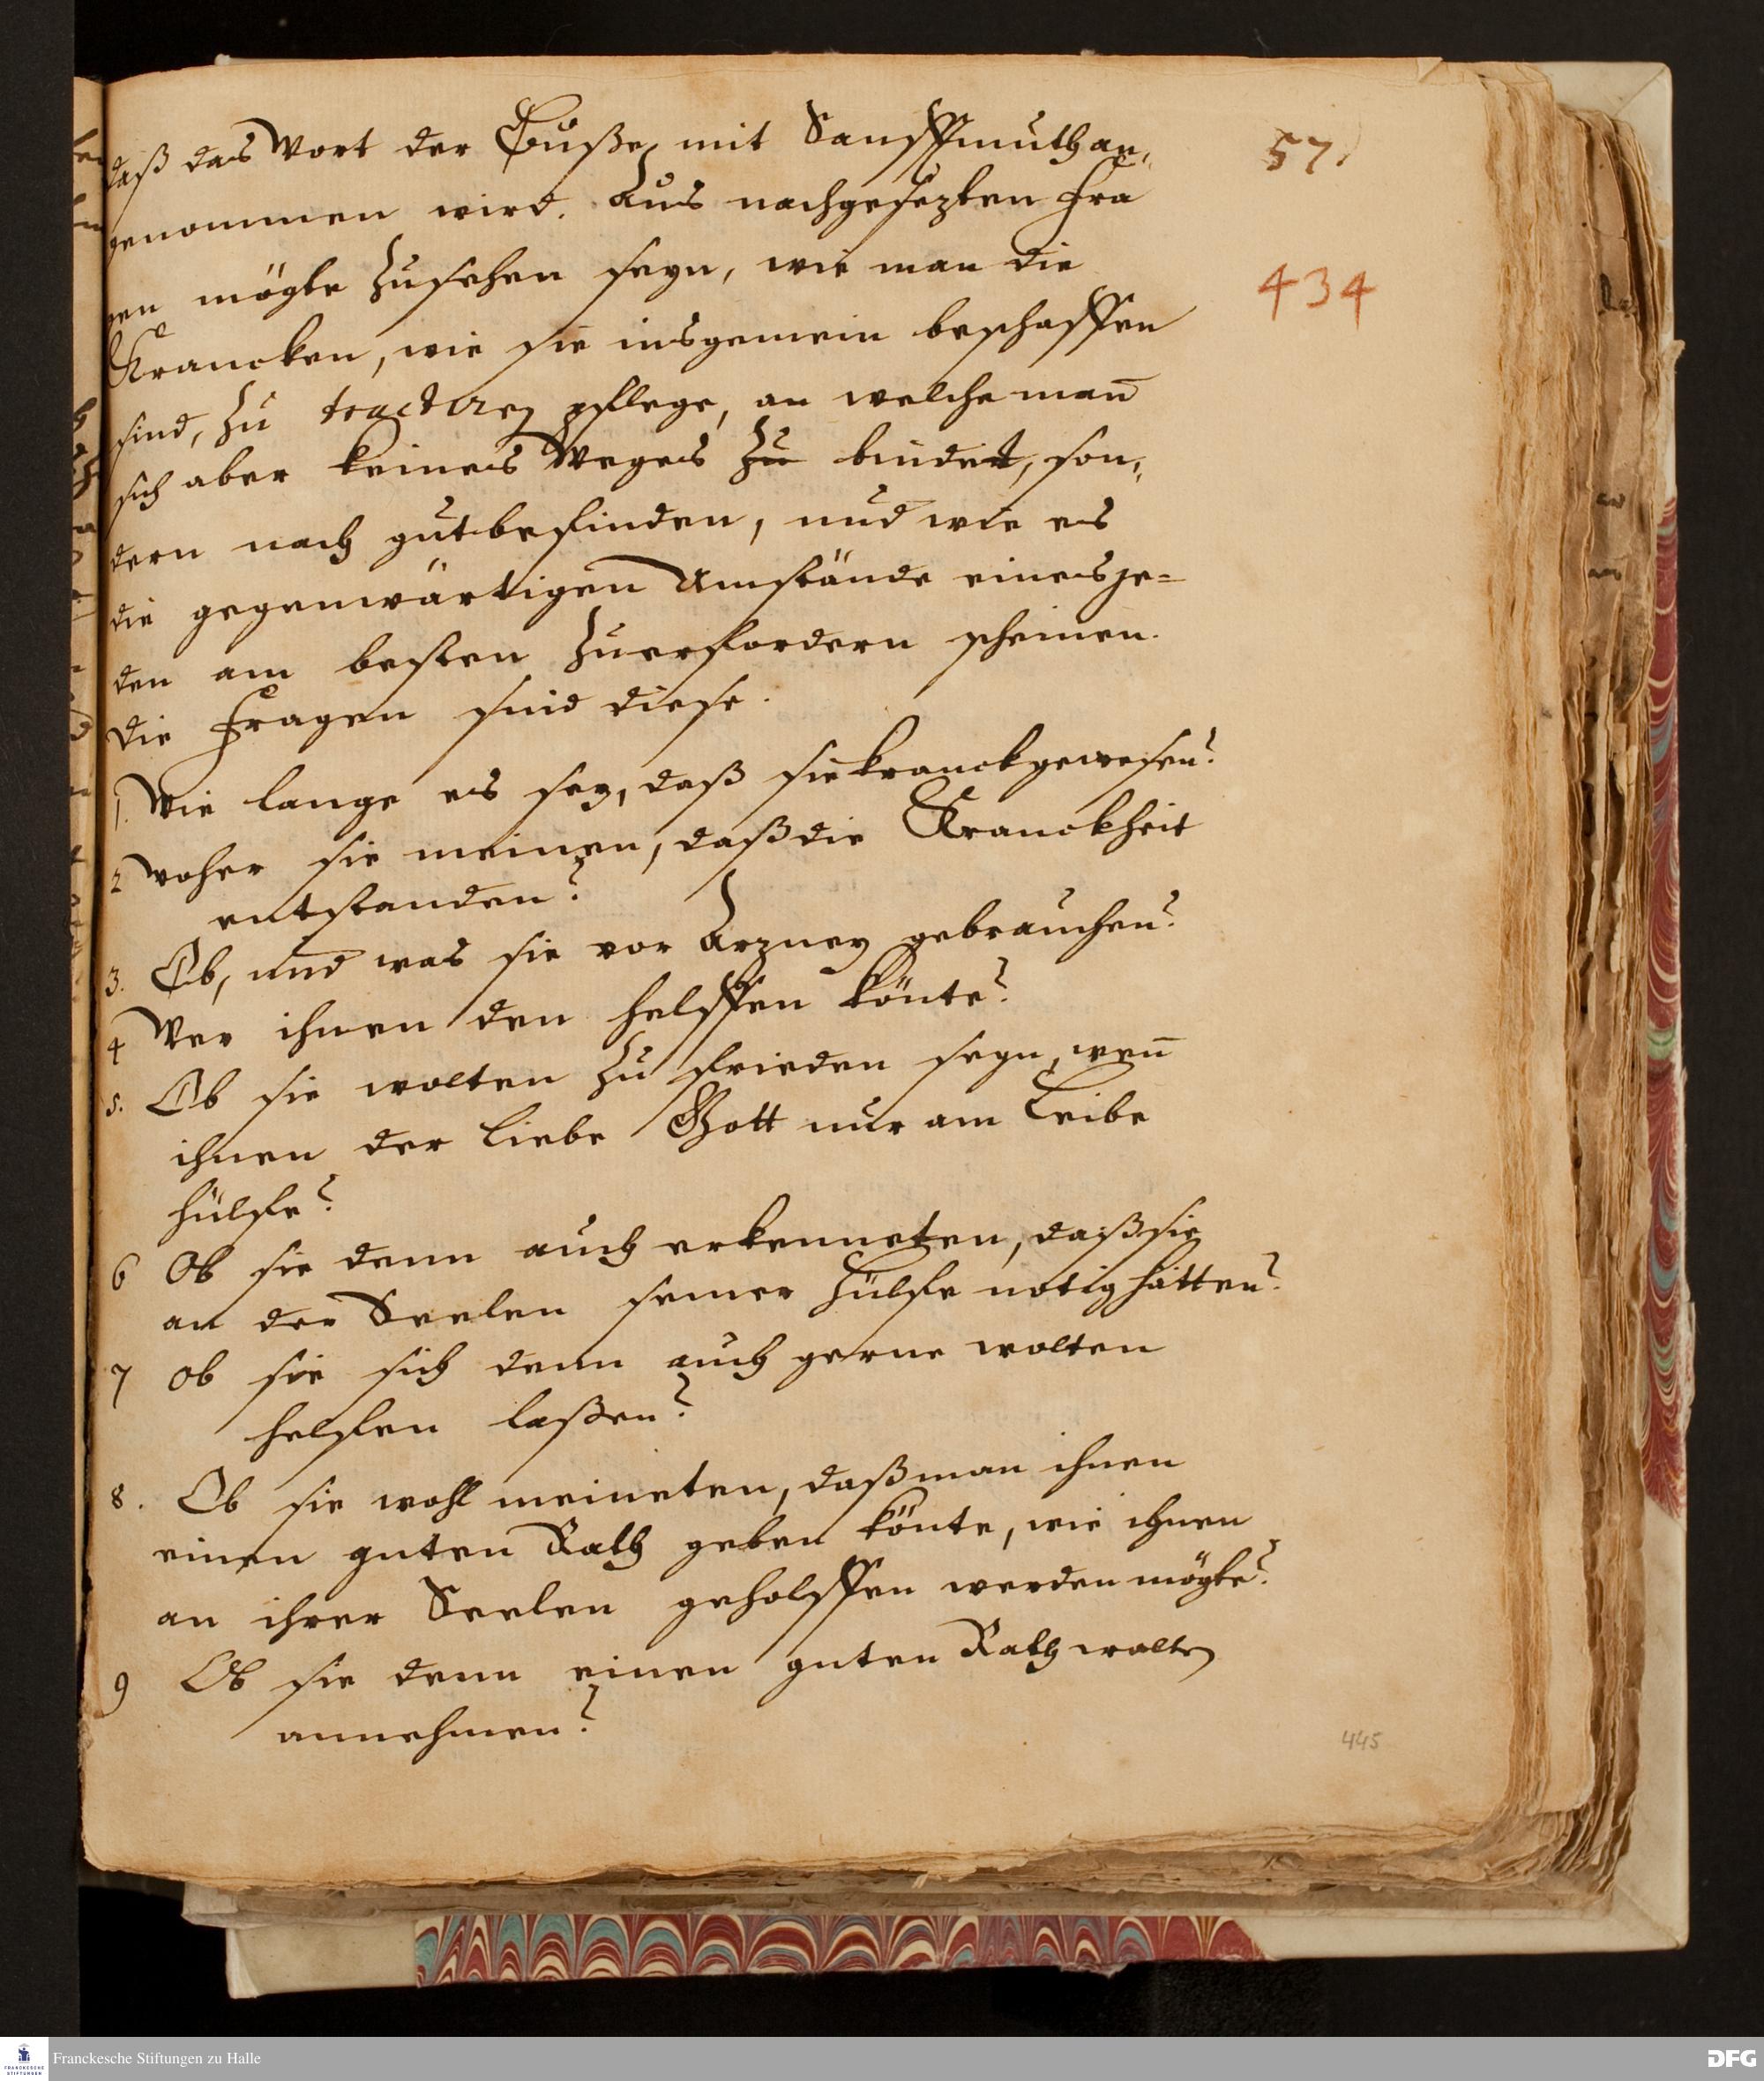 daß das Wort der Buße mit Sanfftmuth an,
57.
genommen wird. Aus nachgesezten Fra
gen mögte zusehen seyn, wie man die
434
Krancken, wie sie insgemein beschaffen
sind, zu tractiren pflege, an welche man̄
sich aber keines Weges zu bindet, son,
dern nach gutbefinden, und wie es
die gegenwärtigen Umstände eines je=
den am besten zuerfordern scheinen.
Die Fragen sind diese.
1. Wie lange es sey, daß sie kranck gewesen?
2 Woher sie meinen, daß die Kranckheit
entstanden?
3. Ob, und was sie vor Arzney gebrauchen?
4 Wer ihnen den helffen könte?
5. Ob sie wolten zu frieden seyn, wen̄
ihnen der liebe Gott nur am Leibe
hülfe?
6 Ob sie denn auch erkenneten, daß sie
an der Seelen seiner Hülfe nötig hätten?
7 Ob sie sich denn auch gerne wolten
helfen laßen?
8. Ob sie wohl meineten, daß man ihnen
einen guten Rath geben könte, wie ihnen
an ihrer Seelen geholffen werden mögte?
9 Ob sie denn einen guten Rath wolten
annehmen?
445
Franckesche Stiftungen zu Halle
DFG